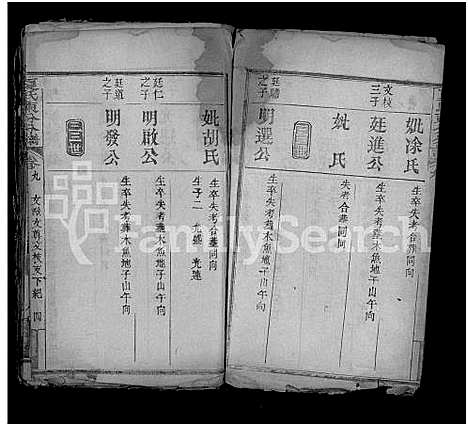 妣涂氏
生卒失考合葬同向
文枝
三子
廷進公
生卒失考葬木魚地子山午向
妣 氏
失考合葬同向
之子
明選公
生卒失考葬木魚地子山午向
妣胡氏
生子二 光盛 光連
廷仁
之子
明啟公
生卒失考葬木魚地子山午向
廷道
之子
明發公
生卒失考葬木魚地子山午向
三世
卷九
文枝支下紀 四
FamilySearch